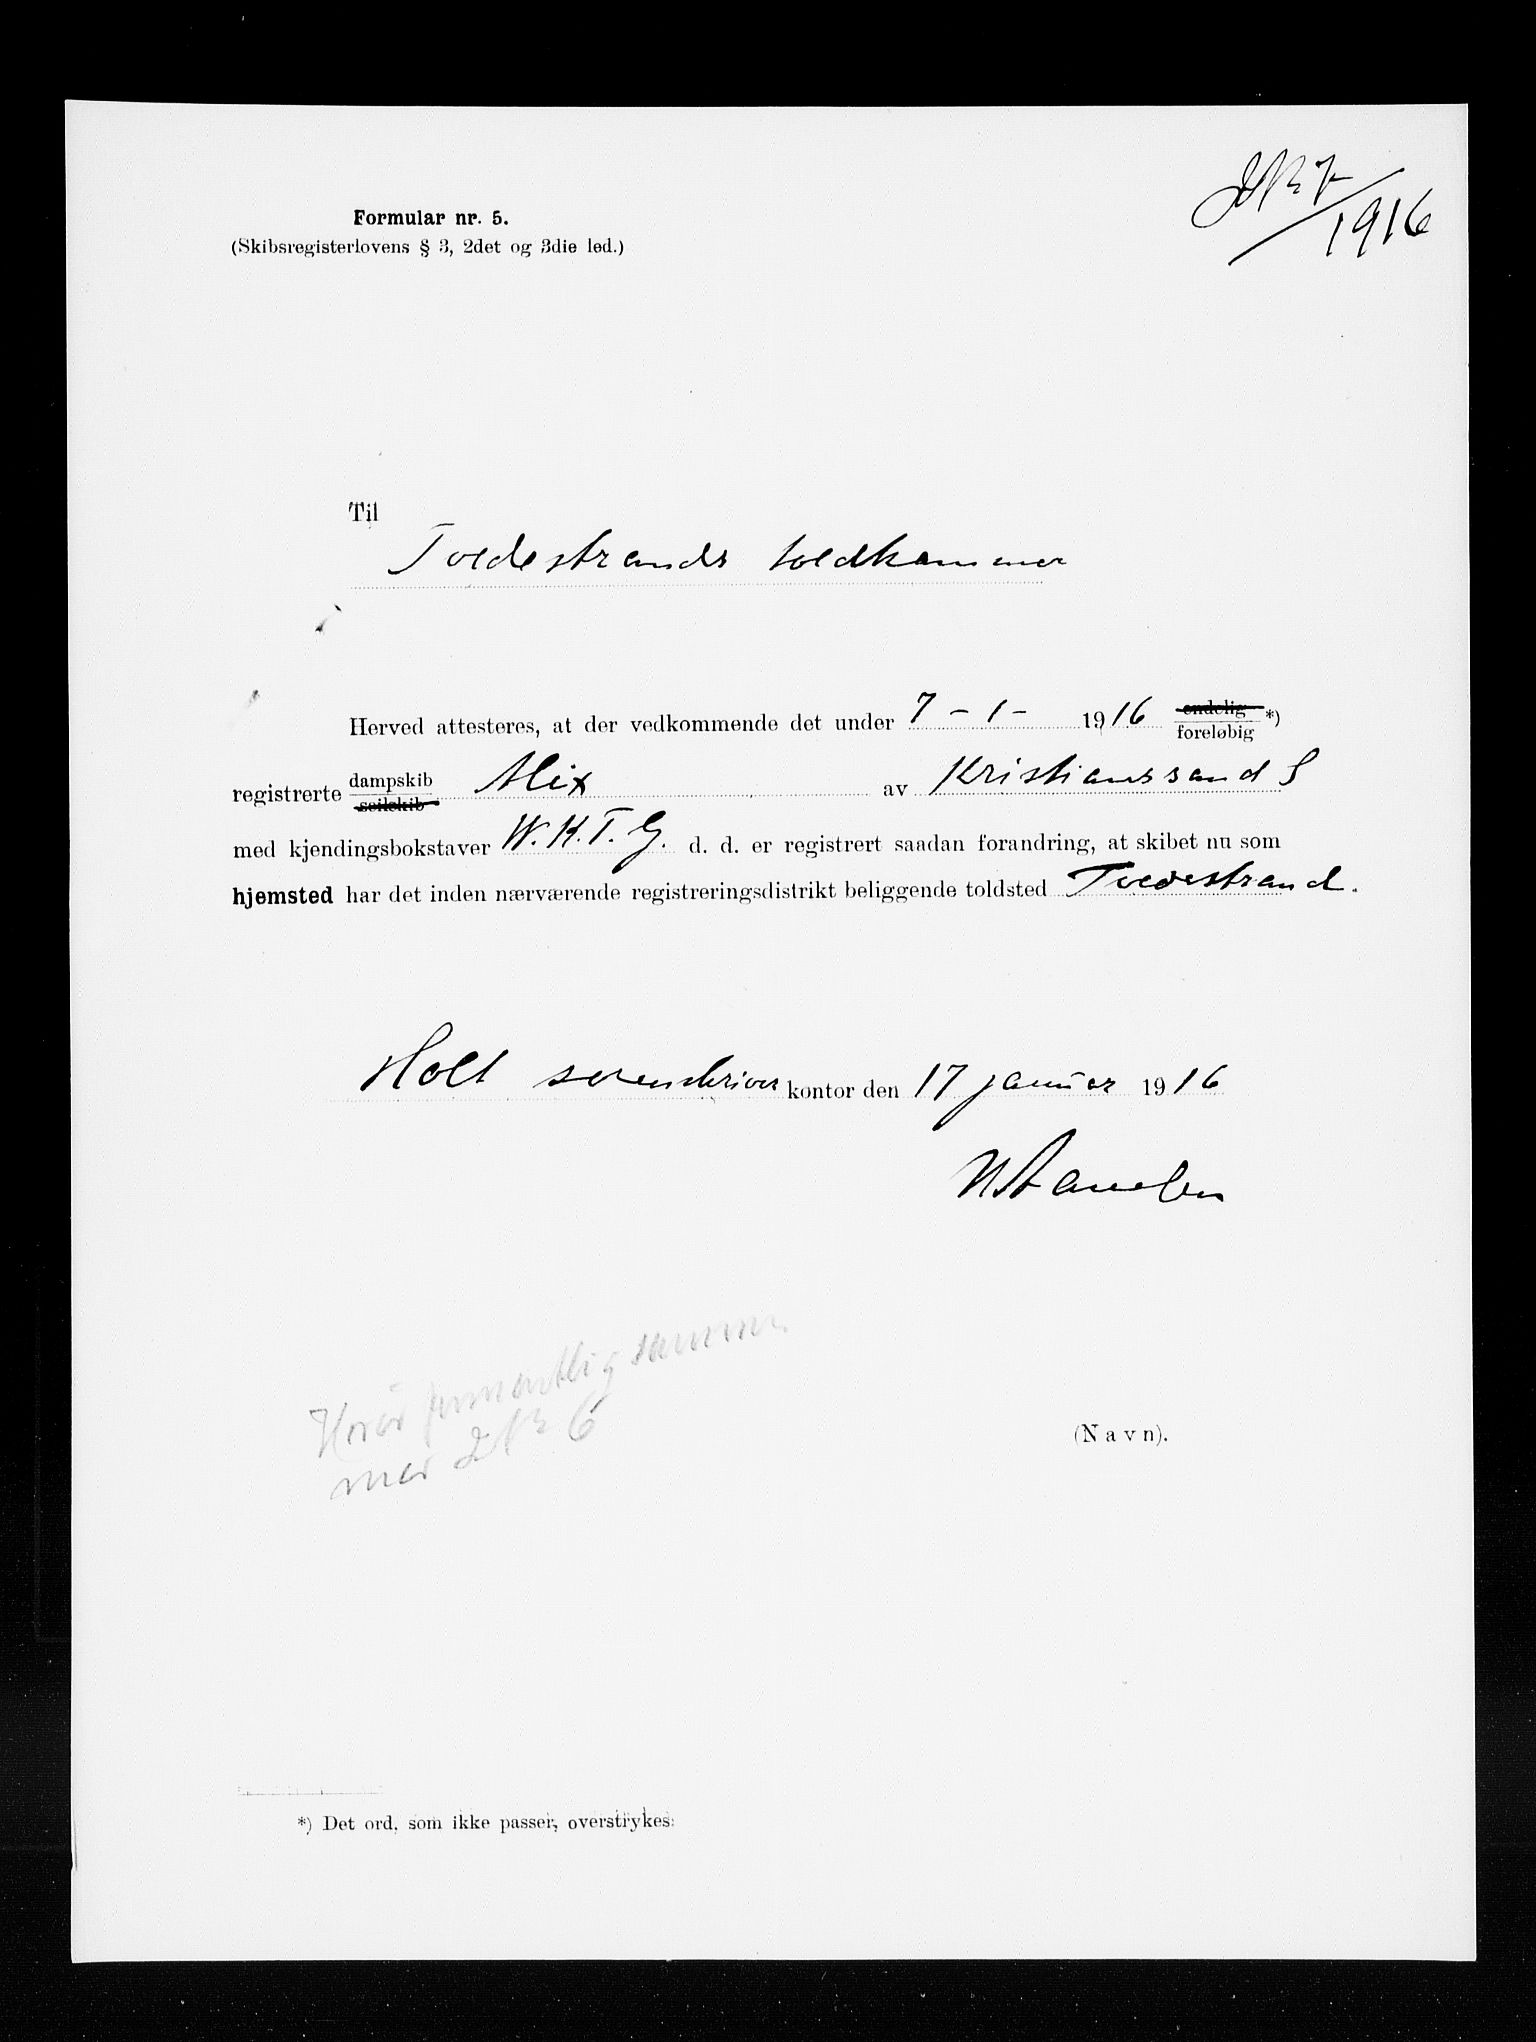 JNr 7
/1916
Formular nr. 5.
(Skibsregisterlovens § 3, 2det og 3die led.)
Til
Tvedestrands toldkammer
Herved attesteres, at der vedkommende det under 7 - 1 - 1916 endelig foreløbig *)
registrerte dampskib seilskib Alix av Kristianssand S
med kjendingsbokstaver W.K.T.G. d. d. er registrert saadan forandring, at skibet nu som
hjemsted har det inden nærværende registreringsdistrikt beliggende toldsted Tvedestrand.
Holt sorenskriver kontor den 17 januar 1916
Hører formentlig sammen
med JNr 6
(Navn).
*) Det ord, som ikke passer, overstrykes.